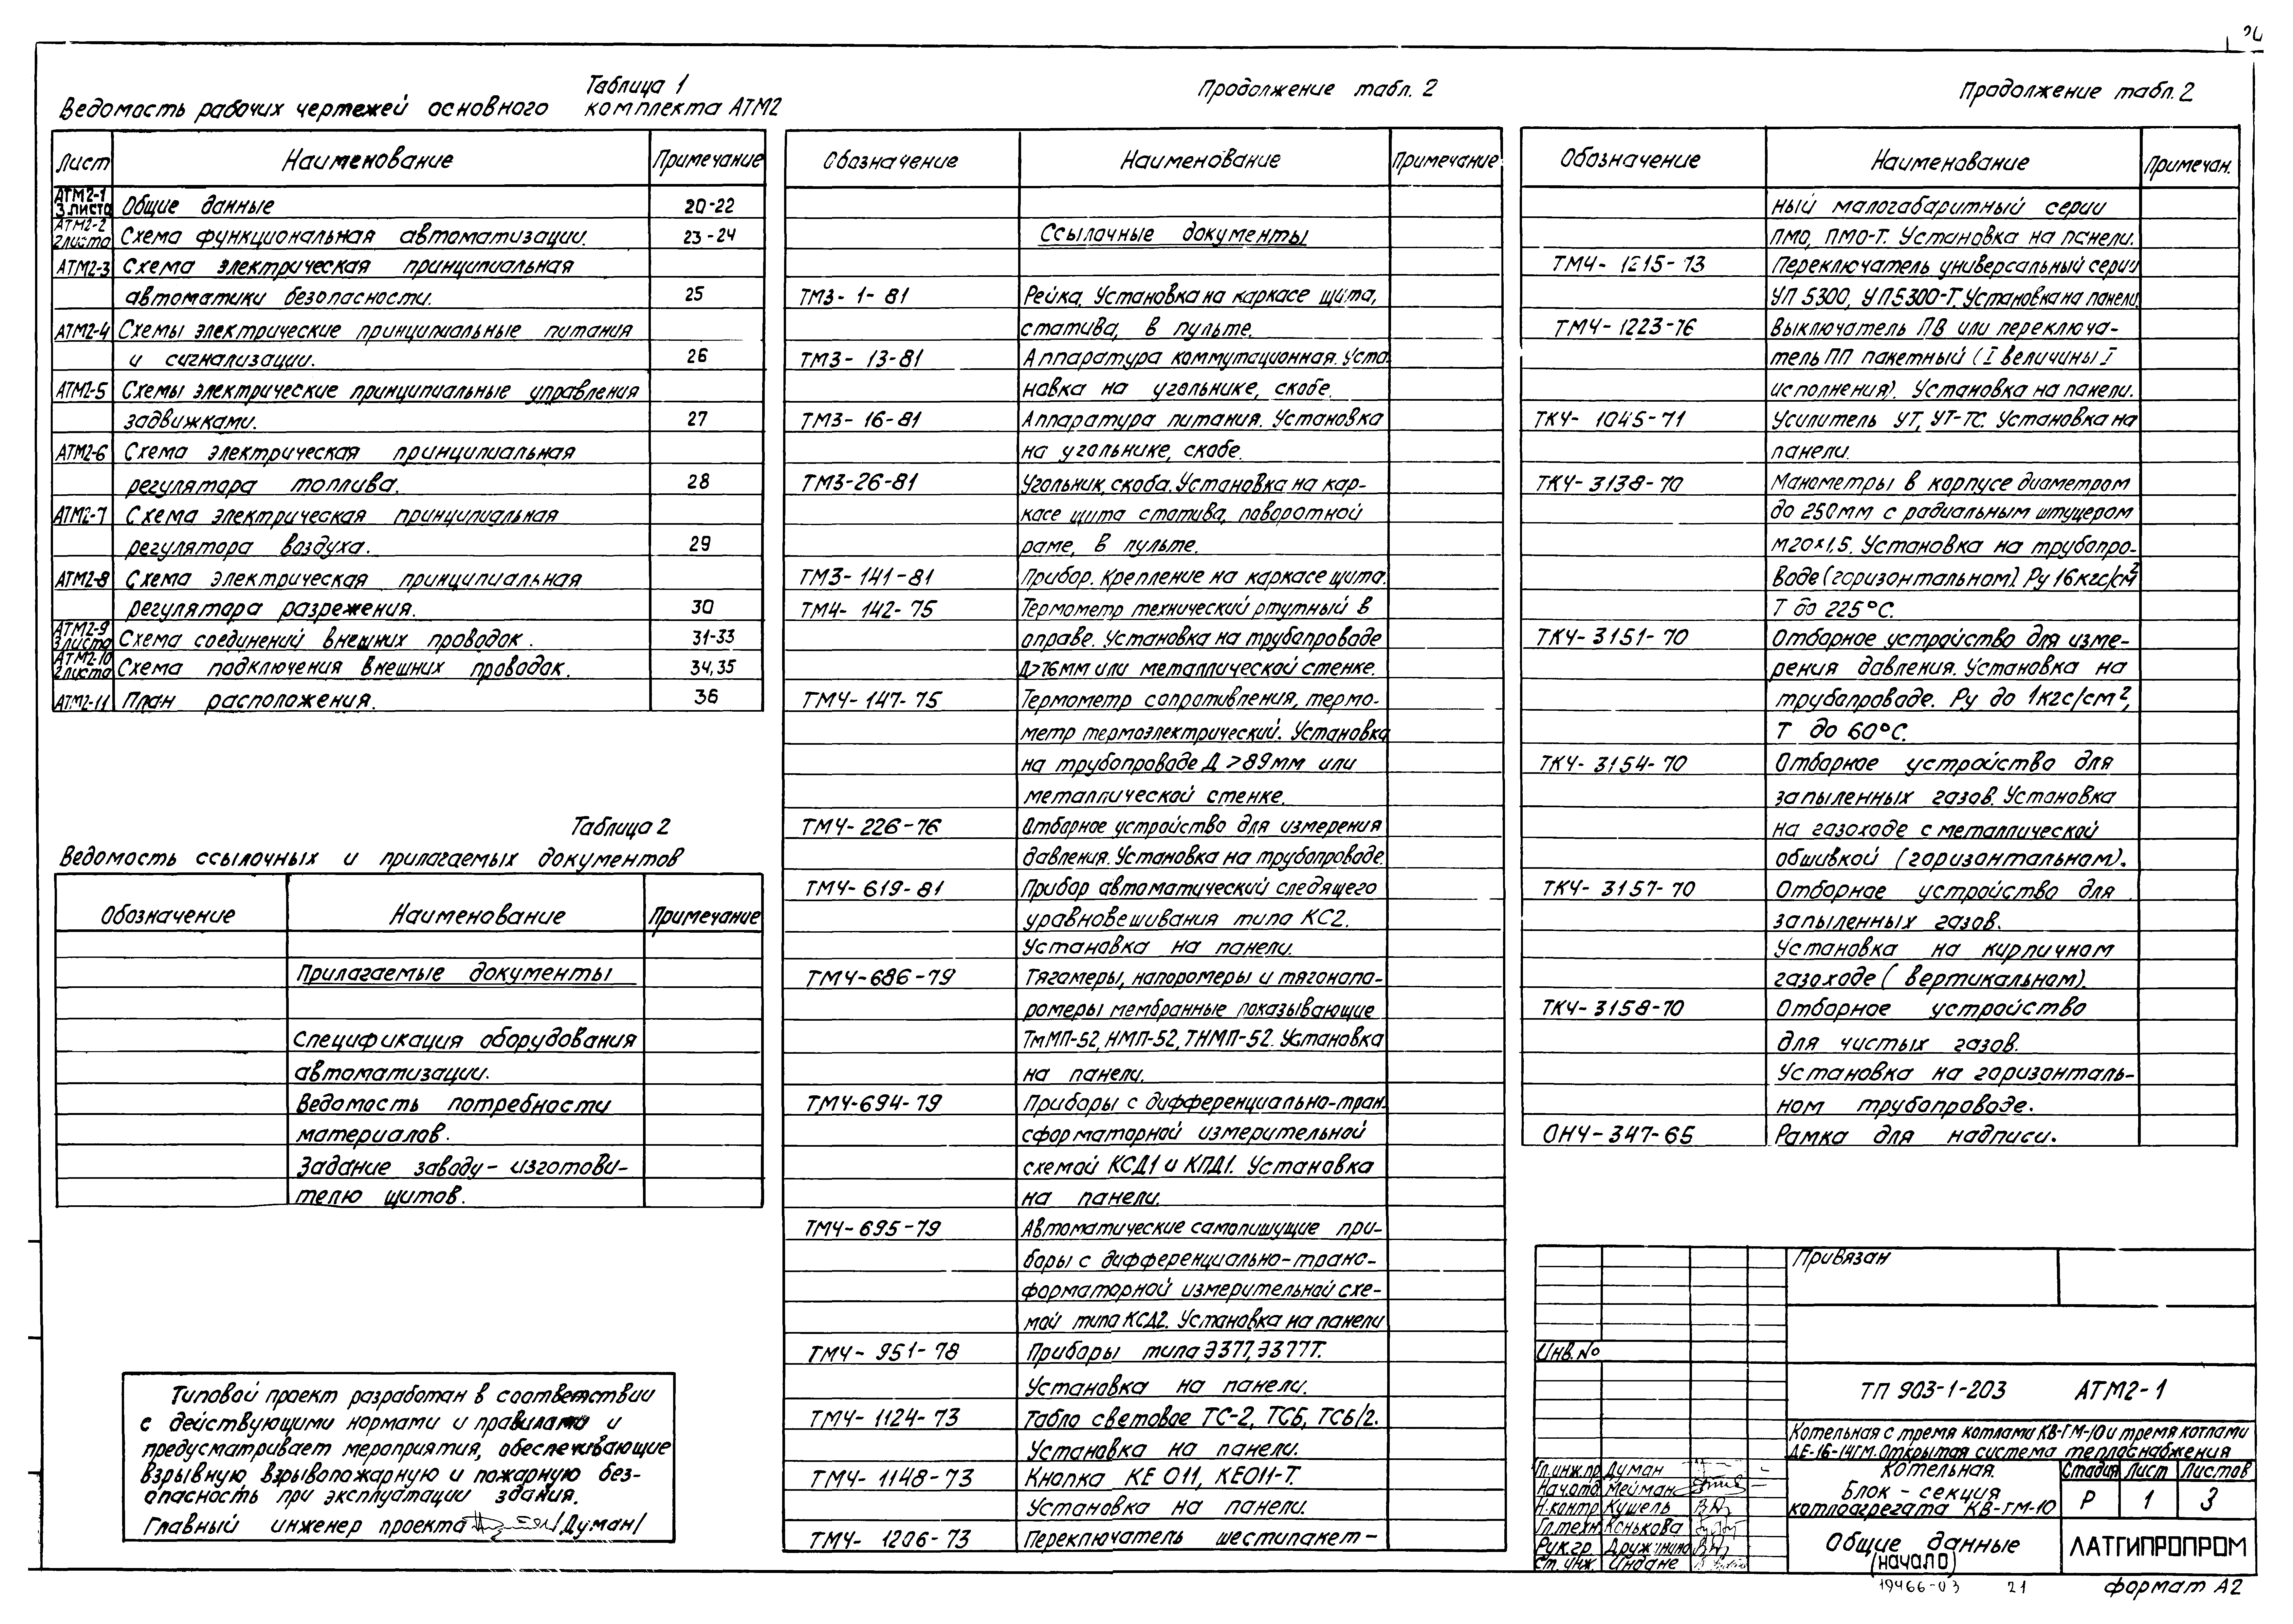 Таблица 1
Ведомость рабочих чертежей основного комплекта АТМ2
Лист Наименование Примечание
АТМ2-1 3 листа Общие данные 20-22
АТМ2-2 2листа Схема функциональная автоматизации. 23-24
АТМ2-3 Схема электрическая принципиальная
автоматики безопасности. 25
АТМ2-4 Схемы электрические принципиальные питания
и сигнализации. 26
АТМ2-5 Схемы электрические принципиальные управления
задвижками. 27
АТМ2-6 Схема электрическая принципиальная
регулятора топлива. 28
АТМ2-7 Схема электрическая принципиальная
регулятора воздуха. 29
АТМ2-8 Схема электрическая принципиальная
регулятора разрежения. 30
АТМ2-9 3листа Схема соединений внешних проводок. 31-33
АТМ2-10 2листа Схема подключения внешних проводок. 34,35
АТМ2-11 План расположения. 36
Таблица 2
Ведомость ссылочных и прилагаемых документов
Обозначение Наименование Примечание
Прилагаемые документы
Спецификация оборудования
автоматизации.
Ведомость потребности
материалов.
Задание заводу-изготови-
телю щитов.
Типовой проект разработан в соответствии
с действующими нормами и правилами и
предусматривает мероприятия, обеспечивающие
взрывную, взрывопожарную и пожарную без-
опасность при эксплуатации здания.
Главный инженер проекта /Думан/
Продолжение табл. 2
Обозначение Наименование Примечание
Ссылочные документы
ТМ3-1-81 Рейка. Установка на каркасе щита,
статива, в пульте.
ТМ3-13-81 Аппаратура коммутационная. Уста
новка на угольнике, скобе.
ТМ3-16-81 Аппаратура питания. Установка
на угольнике, скобе.
ТМ3-26-81 Угольник, скоба. Установка на кар-
касе щита статива, поворотной
раме, в пульте.
ТМ3-141-81 Прибор. Крепление на каркасе щита.
ТМ4-142-75 Термометр технический ртутный в
оправе. Установка на трубопроводе
Д>76мм или металлической стенке.
ТМ4-147-75 Термометр сопротивления, термо-
метр термоэлектрический. Установка
на трубопроводе Д >89мм или
металлической стенке.
ТМ4-226-76 Отборное устройство для измерения
давления. Установка на трубопроводе.
ТМ4-619-81 Прибор автоматический следящего
уравновешивания типа КС2.
Установка на панели.
ТМ4-686-79 Тягомеры, напоромеры и тягонапо-
ромеры мембранные показывающие
ТмМП-52, НМП-52, ТНМП-52. Установка
на панели.
ТМ4-694-79 Приборы с дифференциально-тран.
сформаторной измерительной
схемой КСД1 и КПД1. Установка
на панели.
ТМ4-695-79 Автоматические самопишущие при-
боры с дифференциально-транс-
форматорной измерительной схе-
мой типа КСД2. Установка на панели
ТМ4-951-78 Приборы типа Э377, Э377Т.
Установка на панели.
ТМ4-1124-73 Табло световое ТС-2, ТСБ, ТСБ/2.
Установка на панели.
ТМ4-1148-73 Кнопка КЕ 011, КЕ011-Т.
Установка на панели.
ТМ4-1206-73 Переключатель шестипакет-
Продолжение табл. 2
Обозначение Наименование Примечан.
ный малогабаритный серии
ПМО, ПМО-Т. Установка на панели.
ТМ4-1215-73 Переключатель универсальный серии
УП 5300, УП5300-Т. Установка на панели.
ТМ4-1223-76 Выключатель ПВ или переключа-
тель ПП пакетный (I величины I
исполнения). Установка на панели.
ТК4-1045-71 Усилитель УТ, УТ-ТС. Установка на
панели.
ТК4-3138-70 Манометры в корпусе диаметром
до 250мм с радиальным штуцером
М20×1,5. Установка на трубопро-
воде (горизонтальном). Ру 16кгс/см²
Т до 225°С.
ТК4-3151-70 Отборное устройство для изме-
рения давления. Установка на
трубопроводе. Ру до 1кгс/см²,
Т до 60°С.
ТК4-3154-70 Отборное устройство для
запыленных газов. Установка
на газоходе с металлической
обшивкой (горизонтальном).
ТК4-3157-70 Отборное устройство для
запыленных газов.
Установка на кирпичном
газоходе (вертикальном).
ТК4-3158-70 Отборное устройство
для чистых газов.
Установка на горизонталь-
ном трубопроводе.
ОН4-347-65 Рамка для надписи.
Привязан
Инв. №
ТП 903-1-203 АТМ2-1
Котельная с тремя котлами КВ-ГМ-10 и тремя котлами
ДЕ-16-14ГМ. Открытая система теплоснабжения
Гл.инж.пр. Думан
Нач.отд. Мейман
Н.контр. Кушель
Гл.техн. Конькова
Рук.гр. Дружинина
Ст. инж. Индане
Котельная.
Блок-секция
котлоагрегата КВ-ГМ-10
Стадия Лист Листов
Р 1 3
Общие данные
(начало)
ЛАТГИПРОПРОМ
19466-03 21
формат А2